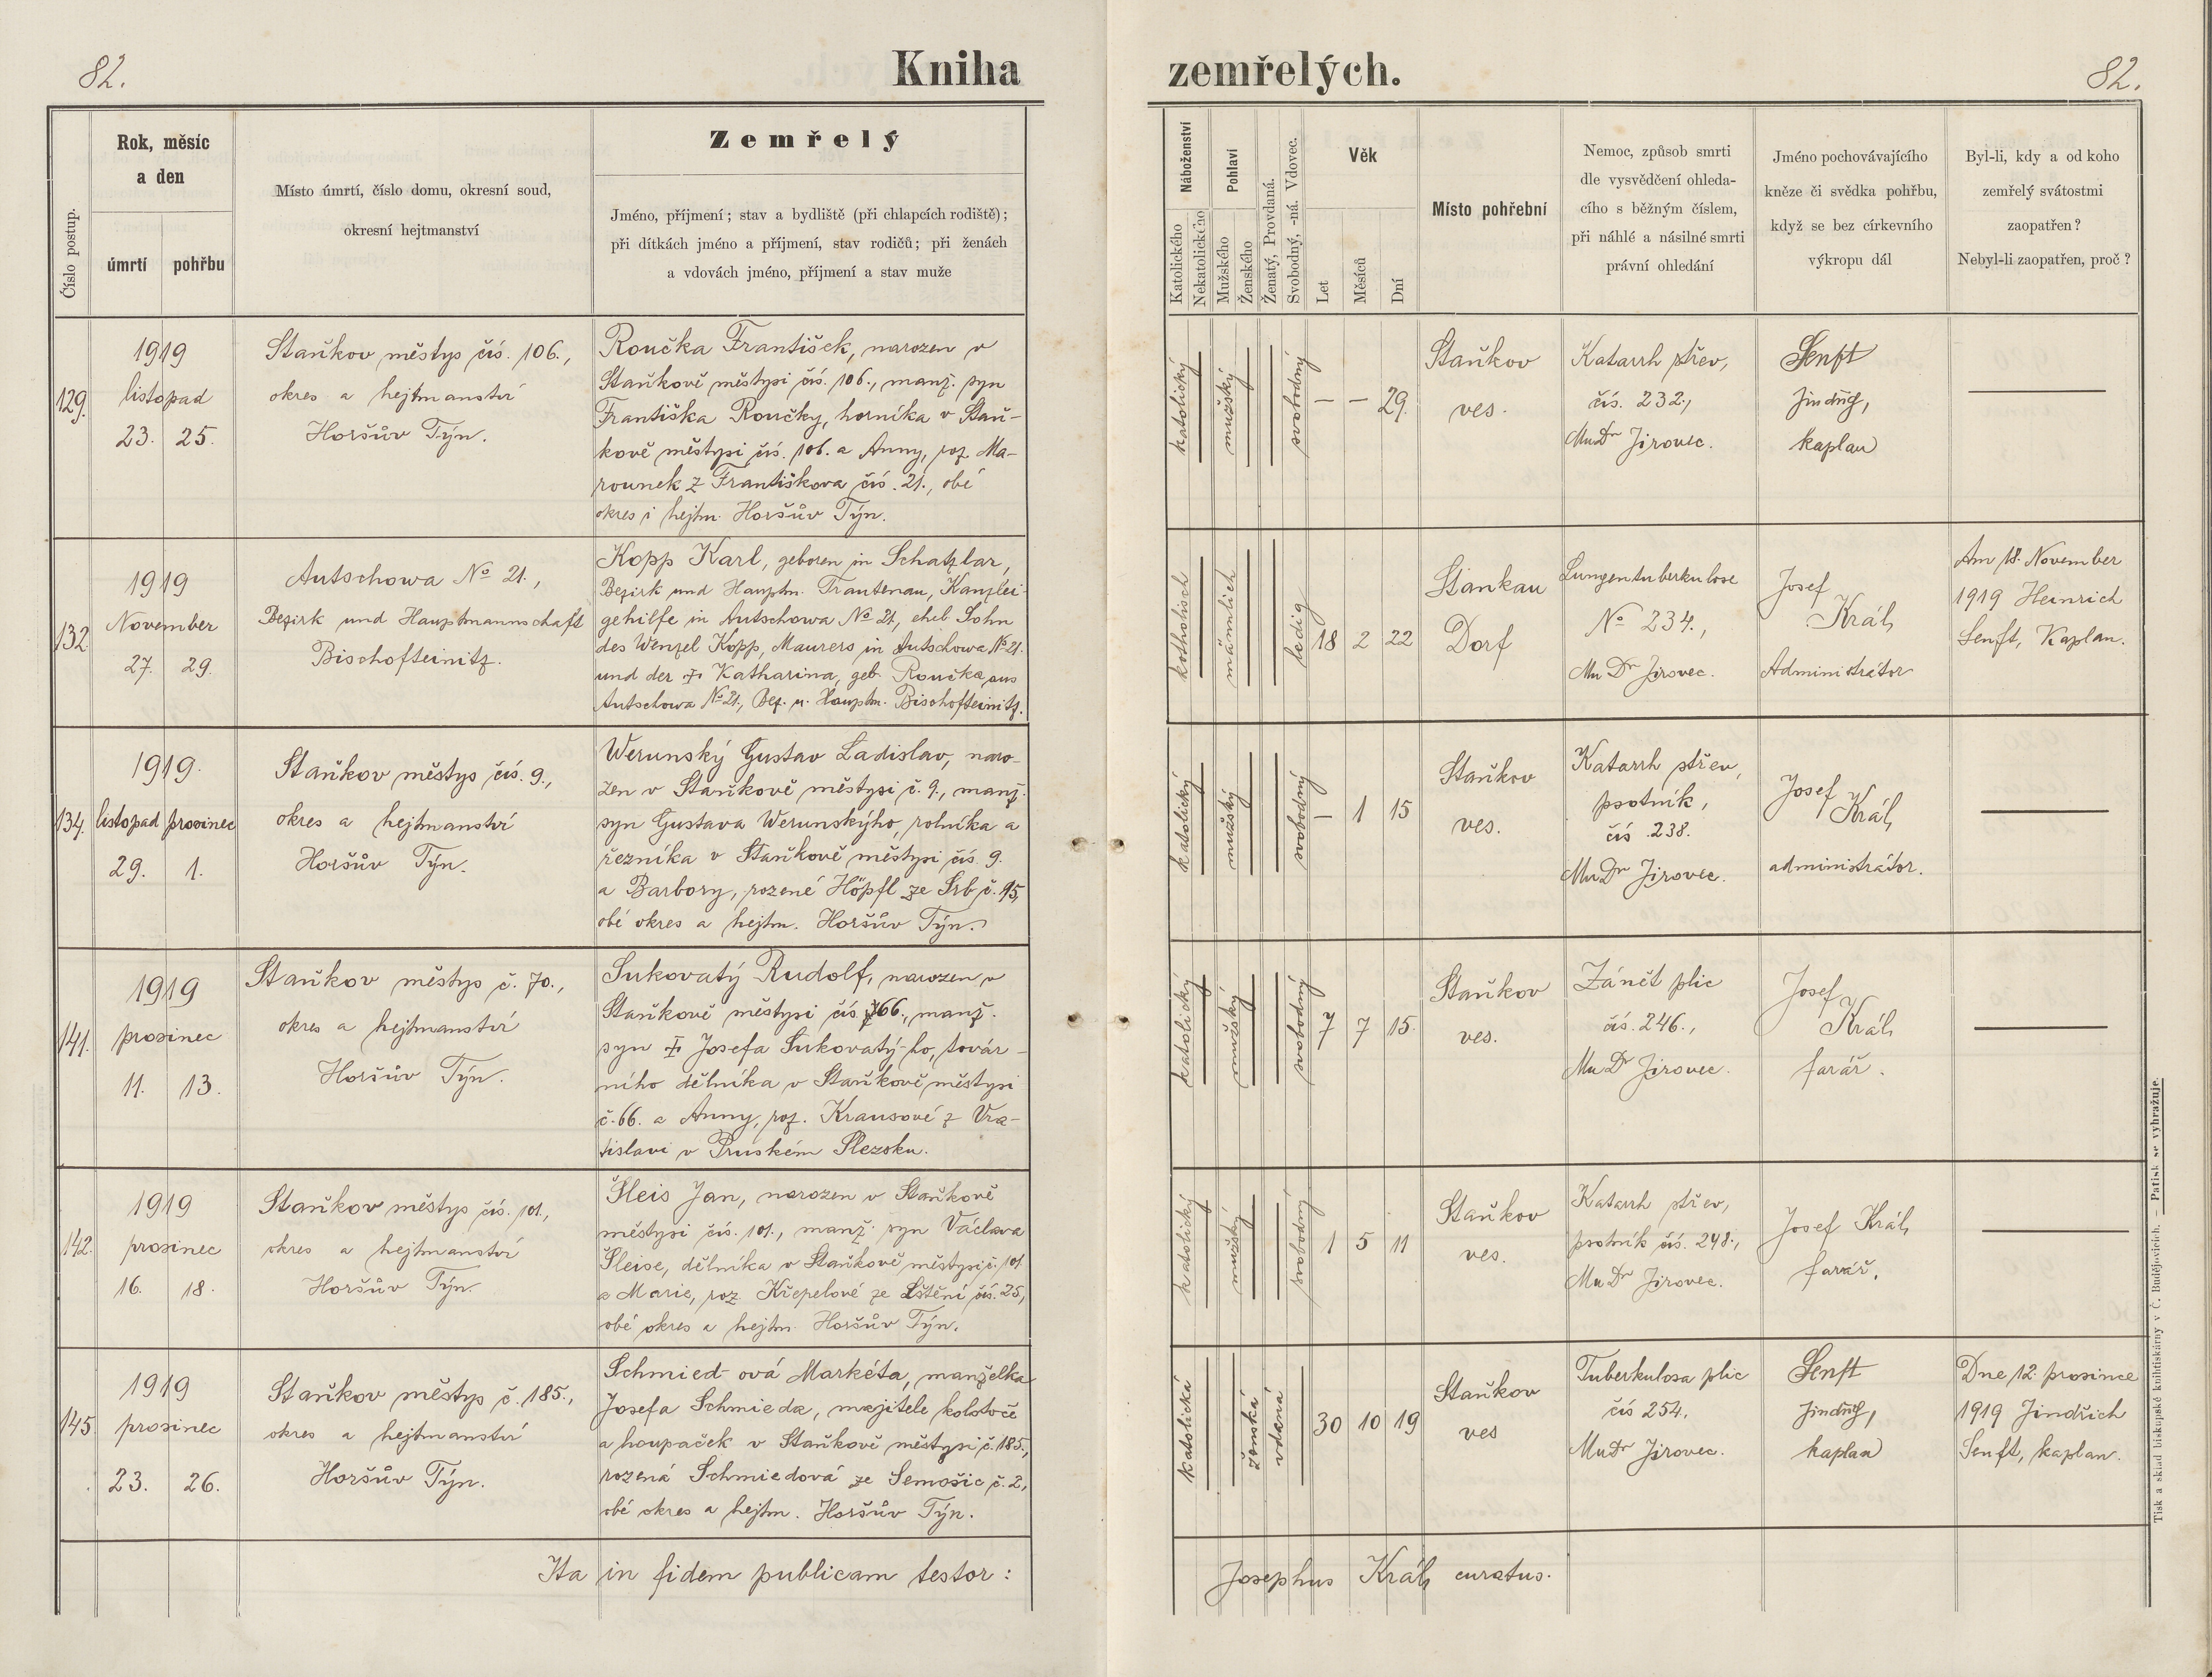 82.
Kniha zemřelých.
82.
Číslo postup.
Rok, měsíc
a den
úmrtí
pohřbu
Místo úmrtí, číslo domu, okresní soud,
okresní hejtmanství
Zemřelý
Jméno, příjmení; stav a bydliště (při chlapcích rodiště);
při dítkách jméno a příjmení, stav rodičů; při ženách
a vdovách jméno, příjmení a stav muže
Náboženství
Katolického
Nekatolického
Pohlaví
Mužského
Ženského
Ženatý, Provdaná.
Svobodný, -ná. Vdovec.
Věk
Let
Měsíců
Dní
Místo pohřební
Nemoc, způsob smrti
dle vysvědčení ohleda-
cího s běžným číslem,
při náhlé a násilné smrti
právní ohledání
Jméno pochovávajícího
kněze či svědka pohřbu,
když se bez církevního
výkropu dál
Byl-li, kdy a od koho
zemřelý svátostmi
zaopatřen?
Nebyl-li zaopatřen, proč?
129.
1919
listopad
23. 25.
Staňkov městys čís. 106.,
okres a hejtmanství
Horšův Týn.
Roučka František, narozen v
Staňkově městysi čís. 106., manž. syn
Františka Roučky, horníka v Staň-
kově městysi čís. 106. a Anny, roz. Ma-
rounek z Františkova čís. 21., obé
okres i hejtm. Horšův Týn.
katolický
mužský
svobodný
— — 29.
Staňkov
ves.
Katarrh střev,
čís. 232.,
MuDr Jirovec.
Senft
Jindřich,
kaplan
—
132.
1919
November
27. 29.
Autschowa No 21.,
Bezirk und Hauptmannschaft
Bischofteinitz.
Kopp Karl, geboren in Schatzlar,
Bezirk und Hauptm. Trautenau, Kanzlei-
gehilfe in Autschowa No 21, ehel. Sohn
des Wenzel Kopp, Maurers in Autschowa No 21.
und der ✝ Katharina, geb. Roučka aus
Autschowa No 21., Bez. u. Hauptm. Bischofteinitz.
katholisch
männlich
ledig
18 2 22
Stankau
Dorf
Lungentuberkulose
No 234.,
MuDr Jirovec.
Josef
Král,
Administrátor
Am 18. November
1919 Heinrich
Senft, Kaplan.
134.
1919.
listopad prosinec
29. 1.
Staňkov městys čís. 9.,
okres a hejtmanství
Horšův Týn.
Werunský Gustav Ladislav, naro-
zen v Staňkově městysi č. 9., manž.
syn Gustava Werunskýho, rolníka a
řezníka v Staňkově městysi čís. 9.
a Barbory, rozené Höpfl ze Srb č. 95,
obé okres a hejtm. Horšův Týn.
katolický
mužský
svobodný
— 1 15
Staňkov
ves.
Katarrh střev,
psotník,
čís. 238.
MuDr Jirovec.
Josef
Král,
administrátor.
—
141.
1919
prosinec
11. 13.
Staňkov městys č. 70.,
okres a hejtmanství
Horšův Týn.
Sukovatý Rudolf, narozen v
Staňkově městysi čís. 66., manž.
syn ✝ Josefa Sukovatý-ho, továr-
ního dělníka v Staňkově městysi
č. 66. a Anny, roz. Krausové z Vra-
tislavi v Pruském Slezsku.
katolický
mužský
svobodný
7 7 15.
Staňkov
ves.
Zánět plic
čís. 246.,
MuDr Jirovec.
Josef
Král,
farář.
—
142.
1919
prosinec
16. 18.
Staňkov městys čís. 101.,
okres a hejtmanství
Horšův Týn.
Šleis Jan, narozen v Staňkově
městysi čís. 101., manž. syn Václava
Šleise, dělníka v Staňkově městysi č. 101
a Marie, roz. Křepelové ze Štění čís. 25,
obé okres a hejtm. Horšův Týn.
katolický
mužský
svobodný
1 5 11
Staňkov
ves.
Katarrh střev,
psotník čís. 248.,
MuDr Jirovec.
Josef Král,
farář.
—
145.
1919
prosinec
23. 26.
Staňkov městys č. 185.,
okres a hejtmanství
Horšův Týn.
Schmied-ová Markéta, manželka
Josefa Schmieda, majitele kolotoče
a houpaček v Staňkově městysi č. 185.,
rozená Schmiedová ze Semošic č. 2,
obé okres a hejtm. Horšův Týn.
katolická
ženská
vdaná
30 10 19
Staňkov
ves
Tuberkulosa plic
čís 254.
MuDr Jirovec.
Senft
Jindřich,
kaplan
Dne 12. prosince
1919 Jindřich
Senft, kaplan.
Ita in fidem publicam testor:
Josephus Král, curatus.
Tisk a sklad biskupské knihtiskárny v Č. Budějovicích. – Patisk se vyhražuje.